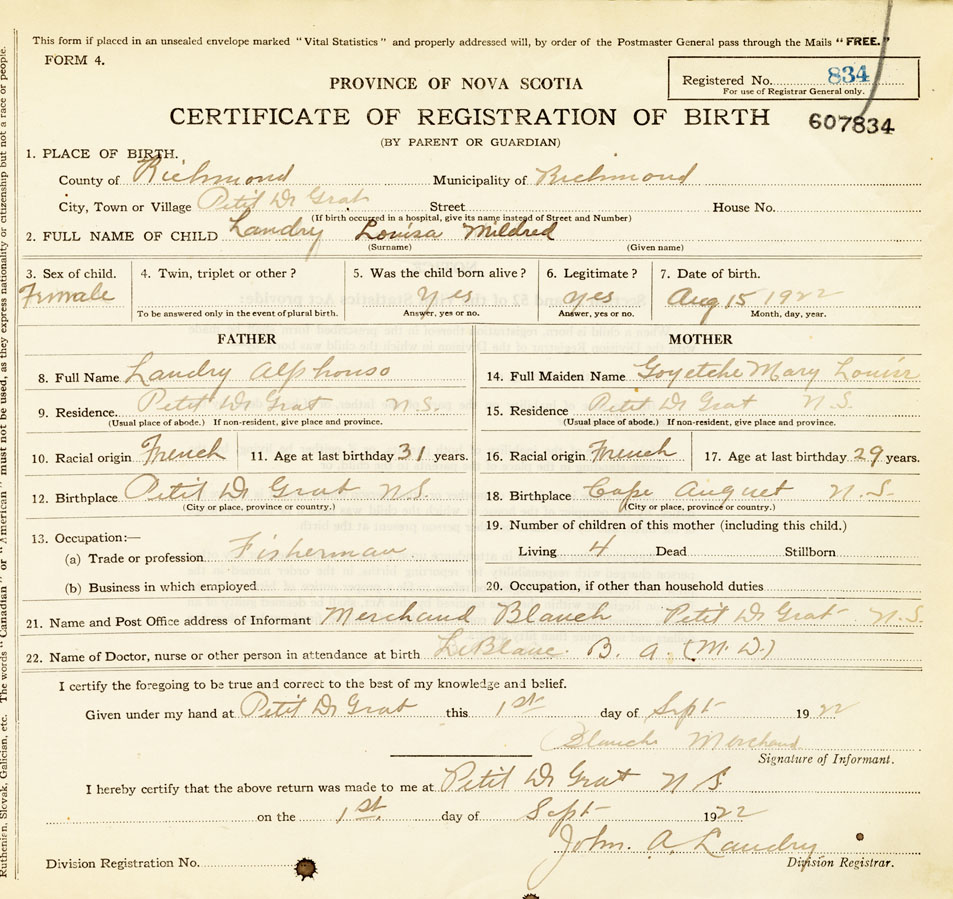 This form if placed in an unsealed envelope marked "Vital Statistics" and properly addressed will, by order of the Postmaster General pass through the Mails "FREE."
FORM 4.
Registered No. 834
For use of Registrar General only.
PROVINCE OF NOVA SCOTIA
CERTIFICATE OF REGISTRATION OF BIRTH
607834
(BY PARENT OR GUARDIAN)
1. PLACE OF BIRTH.
County of Richmond Municipality of Richmond
City, Town or Village Petit De Grat Street House No.
(If birth occurred in a hospital, give its name instead of Street and Number)
2. FULL NAME OF CHILD Landry Louisa Mildred
(Surname) (Given name)
3. Sex of child. 4. Twin, triplet or other? 5. Was the child born alive? 6. Legitimate? 7. Date of birth.
Female Yes yes Aug 15 1922
To be answered only in the event of plural birth. Answer, yes or no. Answer, yes or no. Month, day, year.
FATHER
8. Full Name Landry Alphonso
9. Residence. Petit De Grat N.S.
(Usual place of abode.) If non-resident, give place and province.
10. Racial origin French 11. Age at last birthday 31 years.
12. Birthplace Petit De Grat N.S.
(City or place, province or country.)
13. Occupation:—
(a) Trade or profession Fisherman
(b) Business in which employed
MOTHER
14. Full Maiden Name Goyetche Mary Louise
15. Residence Petit De Grat N.S.
(Usual place of abode.) If non-resident, give place and province.
16. Racial origin French 17. Age at last birthday 29 years.
18. Birthplace Cape Auguet N.S.
(City or place, province or country.)
19. Number of children of this mother (including this child.)
Living 4 Dead Stillborn
20. Occupation, if other than household duties
21. Name and Post Office address of Informant Merchand Blanch Petit De Grat N.S.
22. Name of Doctor, nurse or other person in attendance at birth LeBlanc. B. A. (M.D.)
I certify the foregoing to be true and correct to the best of my knowledge and belief.
Given under my hand at Petit De Grat this 1st day of Sept 1922
Blanch Merchand
Signature of Informant.
I hereby certify that the above return was made to me at Petit De Grat N S
on the 1st. day of Sept 1922
John. A. Landry
Division Registration No. Division Registrar.
Ruthenian, Slovak, Galician, etc. The words "Canadian" or "American" must not be used, as they express nationality or citizenship but not a race or people.